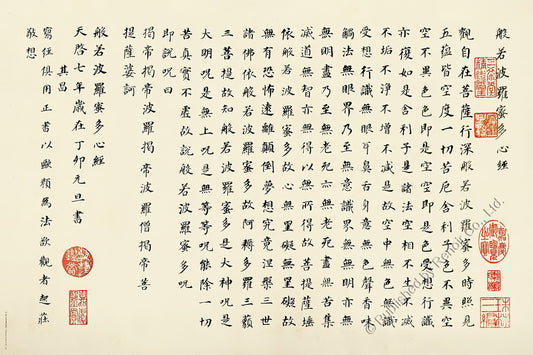 般若波羅蜜多心經
觀自在菩薩行深般若波羅蜜多時照見
五蘊皆空度一切苦厄舍利子色不異空
空不異色色即是空空即是色受想行識
亦復如是舍利子是諸法空相不生不滅
不垢不淨不增不減是故空中無色無
受想行識無眼耳鼻舌身意無色聲香味
觸法無眼界乃至無意識界無無明亦無
無明盡乃至無老死亦無老死盡無苦集
滅道無智亦無得以無所得故菩提薩埵
依般若波羅蜜多故心無罣礙無罣礙故
無有恐怖遠離顛倒夢想究竟涅槃三世
諸佛依般若波羅蜜多故阿耨多羅三藐
三菩提故知般若波羅蜜多是大神呪是
大明呪是無上呪是無等等呪能除一切
苦真實不虛故說般若波羅蜜多呪
即說呪曰
揭帝揭帝波羅揭帝波羅僧揭帝菩
提薩婆訶
般若波羅蜜多心經
天啓七年歲在丁卯元旦書
其昌
寫經俱用正書以歐顏為法欲觀者起莊
敬想
© Published by Rehoi Co., Ltd.